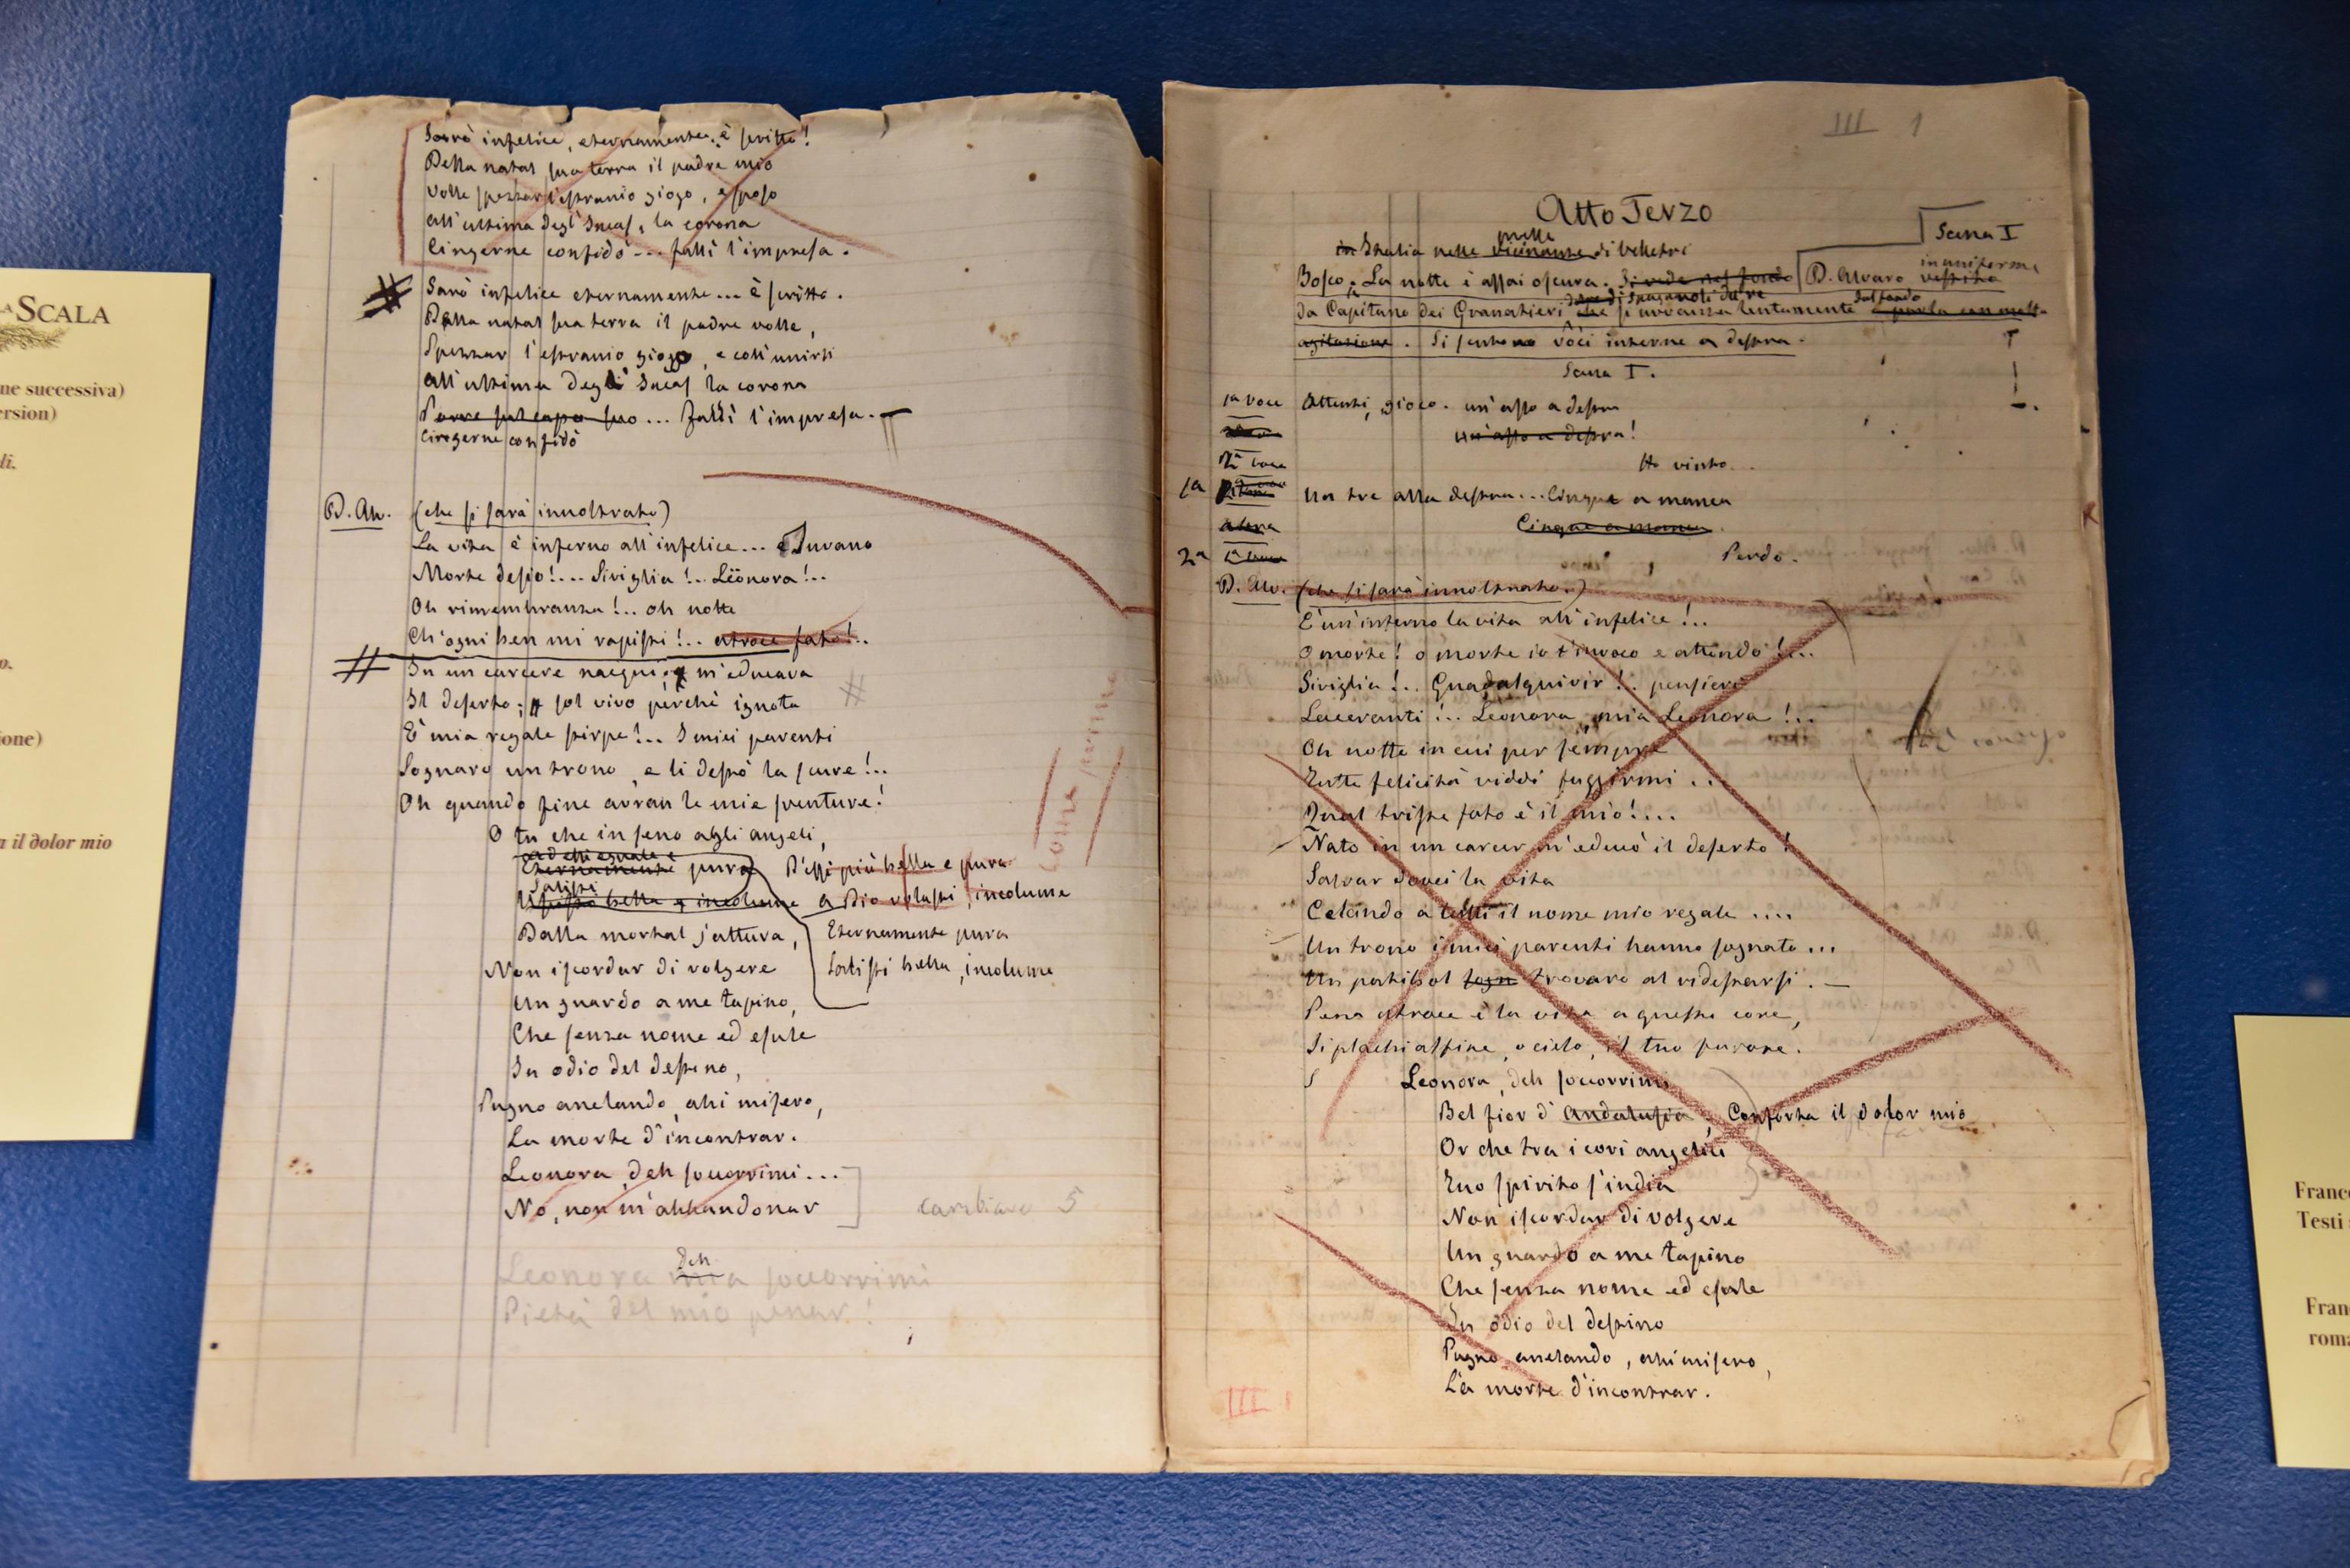 LA SCALA
ne successiva)
ersion)
di.
o.
ione)
a il dolor mio
Sarò infelice, eternamente.. è scritto!
Della natal sua terra il padre mio
Volle spezzar l'estranio giogo, e sposo
all'ultima degl'Incas, la corona
Cingerne confidò... fallì l'impresa.
Sarò infelice eternamente... è scritto.
Della natal sua terra il padre volle,
Spezzar l'estranio giogo, e coll'unirsi
all'ultima degl'Incas la corona
Porre sul capo suo... Fallì l'impresa.
Cingerne confidò
D. Alv. (che si sarà innoltrato)
La vita è inferno all'infelice... Invano
Morte desio!... Siviglia!.. Leonora!..
Oh rimembranza!.. oh notte
Ch'ogni ben mi rapisti!.. atroce fato!..
In un carcere nacqui; m'educava
Il deserto; sol vivo perchè ignota
È mia regale stirpe!... I miei parenti
Sognaro un trono, e li destò la scure!..
Oh quando fine avran le mie sventure!
O tu che in seno agli angeli,
Eternamente pura D'essi più bella e pura
Salisti
bella e incolume a Dio volasti, incolume
Dalla mortal jattura, Eternamente pura
Non iscordar di volgere Salisti bella, incolume
Un guardo a me tapino,
Che senza nome ed esule
In odio del destino,
Pugno anelando, ahi misero,
La morte d'incontrar.
Leonora, deh soccorrimi...
No, non m'abbandonar
cambiare 5
Deh
Leonora mia soccorrimi
Pietà del mio penar!
III 1
Atto Terzo
Scena I
nelle
in Italia nelle vicinanze di Velletri
Bosco. La notte è assai oscura. Si vede nel fondo D. Alvaro vestito in uniforme
da Capitano dei Granatieri che si avvanza lentamente
agitazione. Si sentono voci interne a destra.
Scena I.
1a voce Attenti, gioco. un'asso a destra
un'asso a destra!
2a voce Ho vinto...
1a Un tre alla destra... Cinque a manca
Cinque a manca
2a Perdo.
D. Alv. (che si sarà innoltrato.)
È un'inferno la vita all'infelice!...
O morte! o morte io t'invoco e attendo!...
Siviglia!.. Guadalquivir!.. pensieri
Laceranti!... Leonora, mia Leonora!...
Oh notte in cui per sempre
Tutte felicità viddi fuggirmi...
Qual triste fato è il mio!....
Nato in un carcer m'educò il deserto!
Salvar dovei la vita
Celando a tutti il nome mio regale....
Un trono i miei parenti hanno sognato...
Un patibol sogn trovaro al ridestarsi.
Pena atroce è la vita a questo core,
Si plachi alfine, o cielo, il tuo furore.
Leonora, deh soccorrimi
Bel fior d'Andalusia, Conforta il dolor mio
Or che tra i cori angelici
Tuo spirito s'india
Non iscordar di volgere
Un guardo a me tapino
Che senza nome ed esule
In odio del destino
Pugno anelando, ahi misero,
La morte d'incontrar.
III 1
France
Testi
Fran
roma